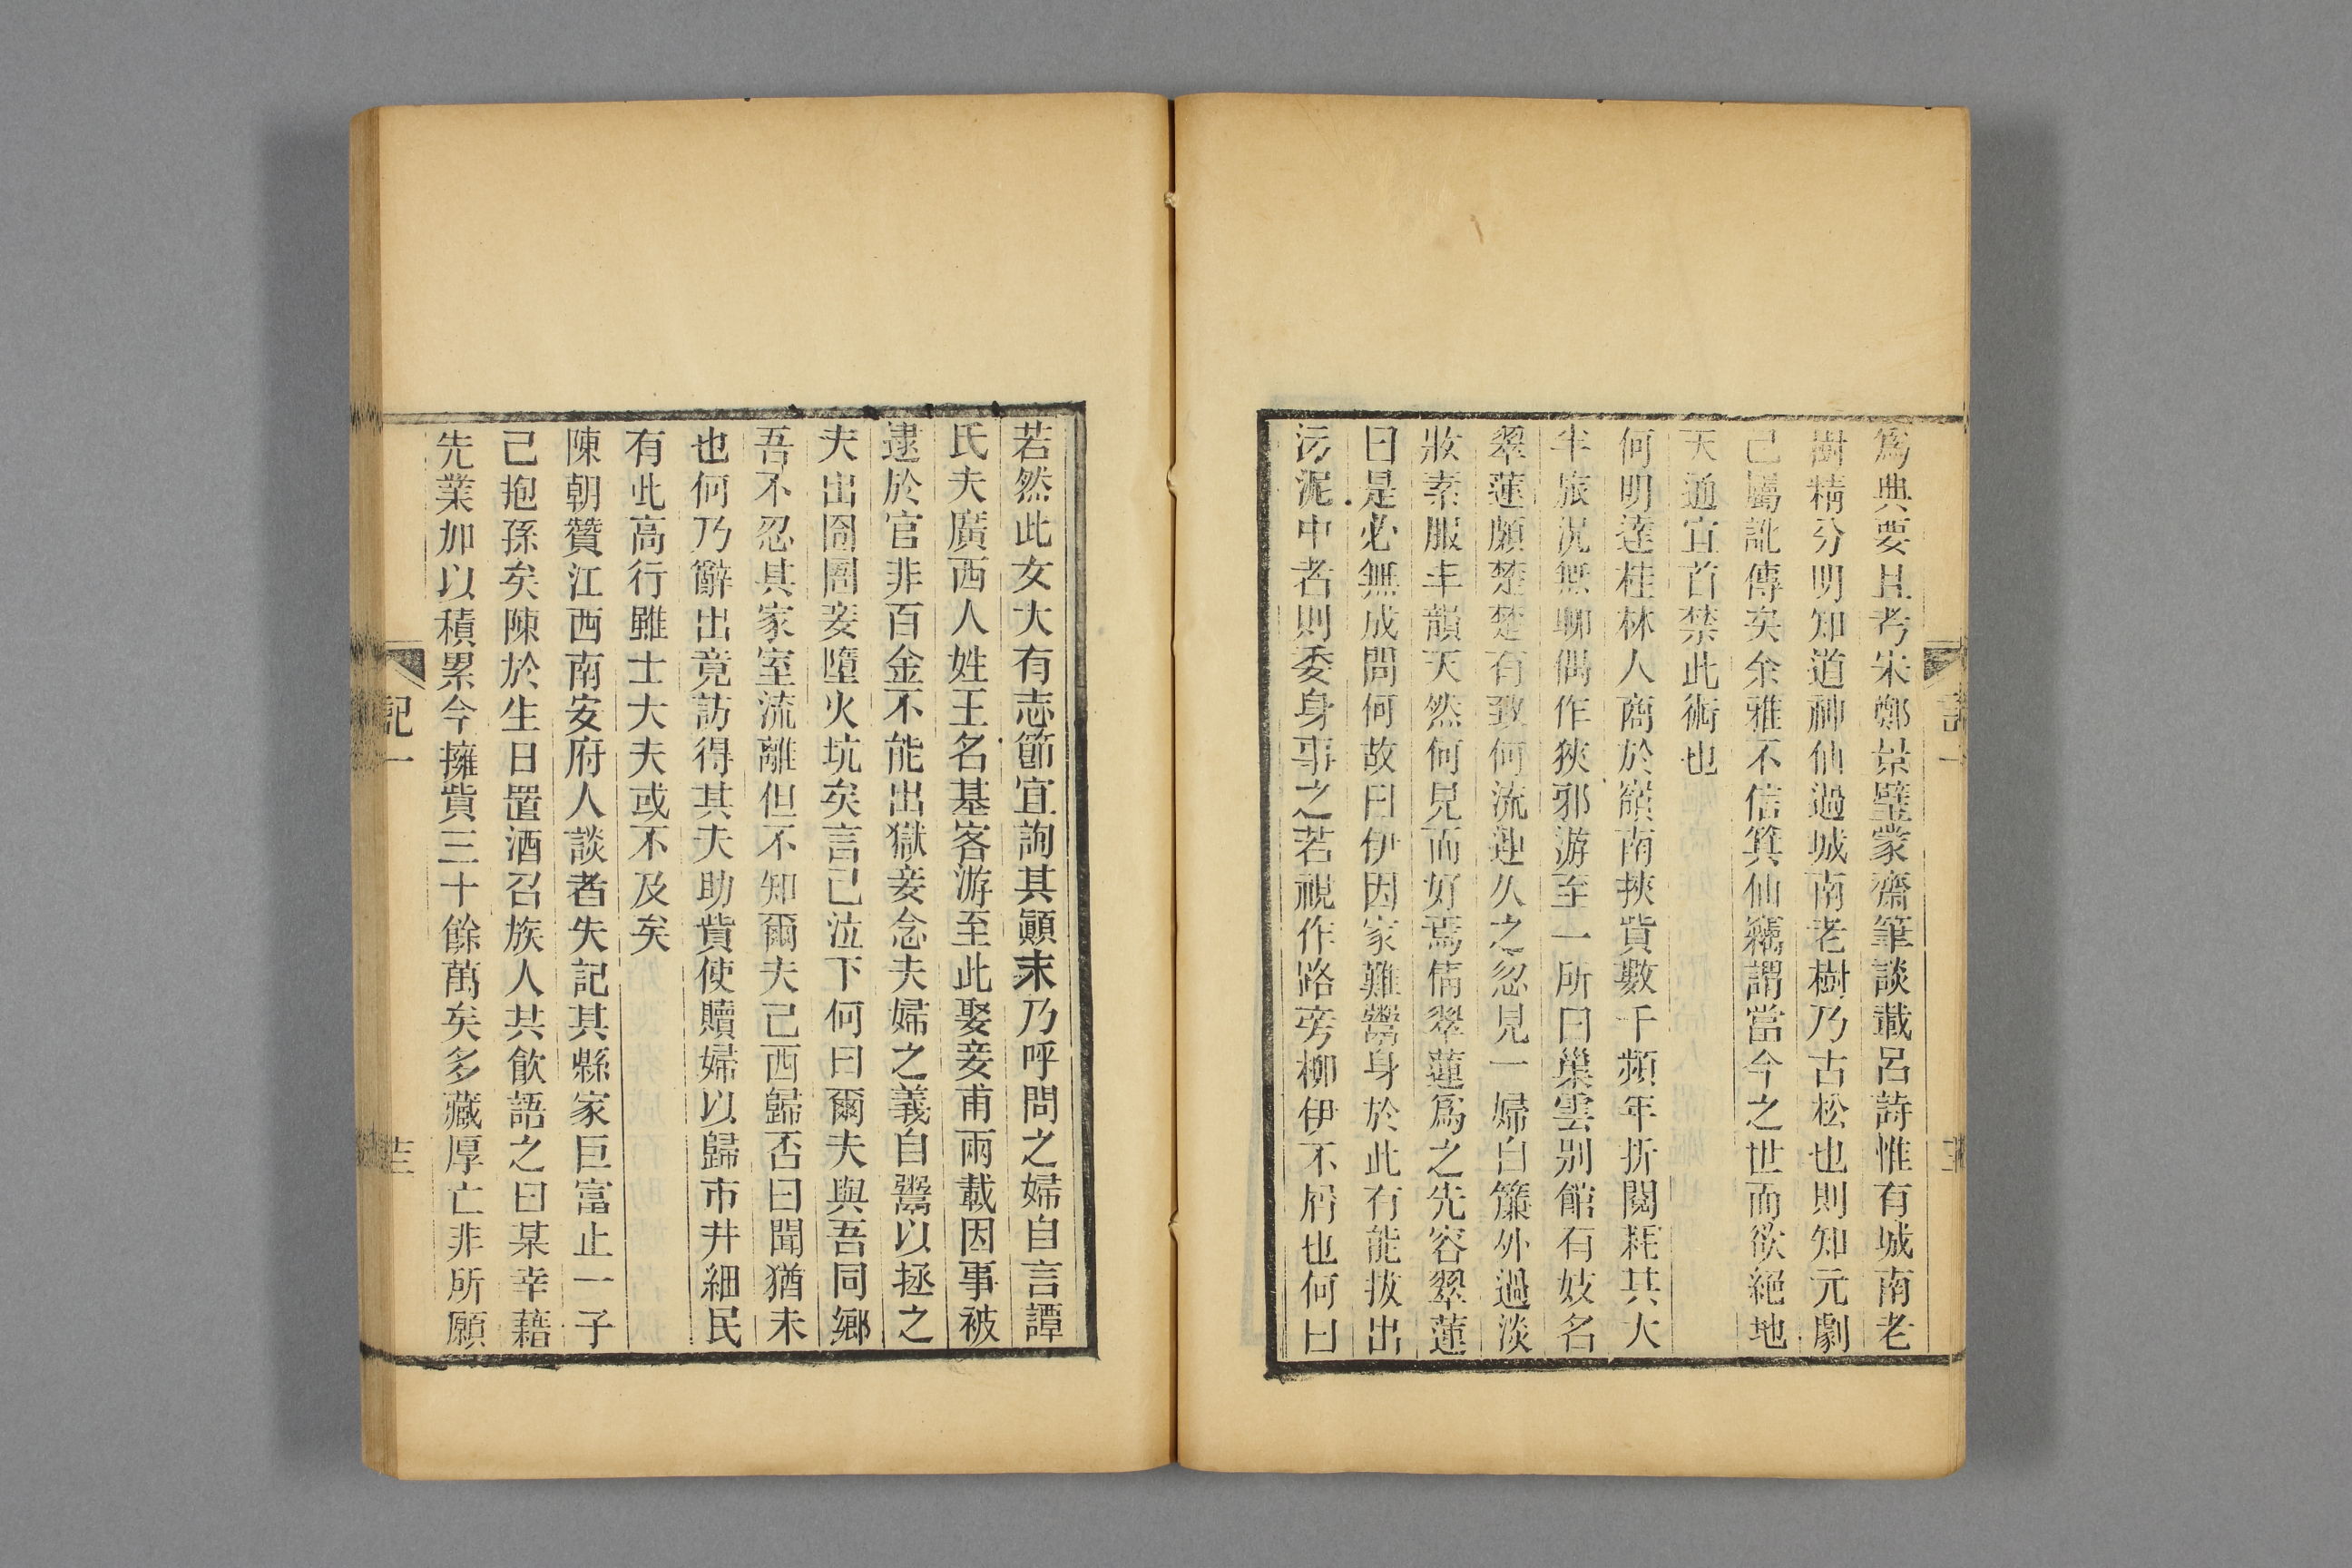 爲典要且考宋鄭景璧蒙齋筆談載呂詩惟有城南老
樹精分明知道神仙過城南老樹乃古松也則知元劇
已屬訛傳矣余雅不信箕仙竊謂當今之世而欲絕地
天通宜首禁此術也
何明達桂林人商於嶺南挾貲數千頻年折閱耗其大
半旅況無聊偶作狹邪游至一所曰巢雲别館有妓名
翠蓮頗楚楚有致何流連久之忽見一婦自簾外過淡
妝素服丰韻天然何見而好焉倩翠蓮爲之先容翠蓮
曰是必無成問何故曰伊因家難鬻身於此有能拔出
污泥中者則委身事之若視作路旁柳伊不屑也何曰
若然此女大有志節宜詢其顚末乃呼問之婦自言譚
氏夫廣西人姓王名基客游至此娶妾甫兩載因事被
逮於官非百金不能出獄妾念夫婦之義自鬻以拯之
夫出囹圄妾墮火坑矣言已泣下何曰爾夫與吾同鄉
吾不忍其家室流離但不知爾夫已西歸否曰聞猶未
也何乃辭出竟訪得其夫助貲使贖婦以歸市井細民
有此高行雖士大夫或不及矣
陳朝贊江西南安府人談者失記其縣家巨富止一子
已抱孫矣陳於生日置酒召族人共飲語之曰某幸藉
先業加以積累今擁貲三十餘萬矣多藏厚亡非所願
記一